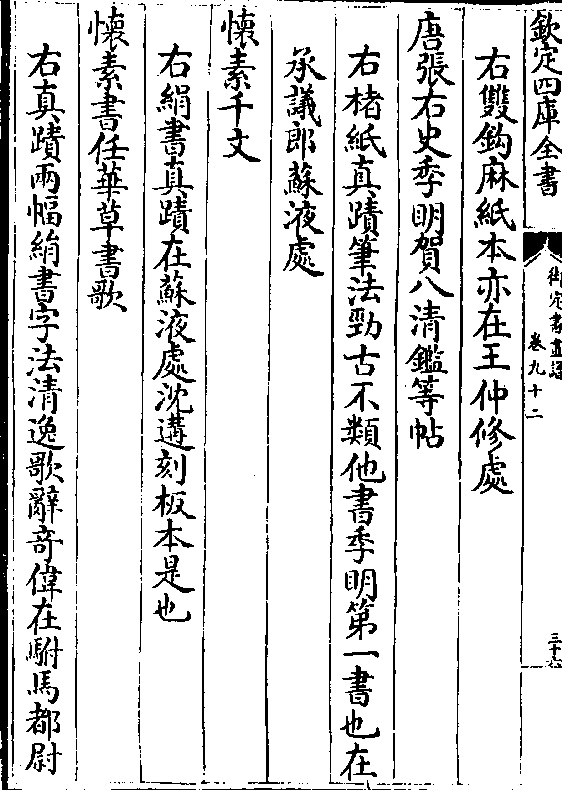 欽定四庫全書
御定書畫譜
卷九十二
三十六
右雙鈎麻紙本亦在王仲修處
唐張右史季明賀八清鑑等帖
右楮紙真蹟筆法勁古不類他書季明第一書也在
承議郎蘇液處
懷素千文
右絹書真蹟在蘇液處沈遘刻板本是也
懷素書任華草書歌
右真蹟兩幅絹書字法清逸歌辭奇偉在駙馬都尉